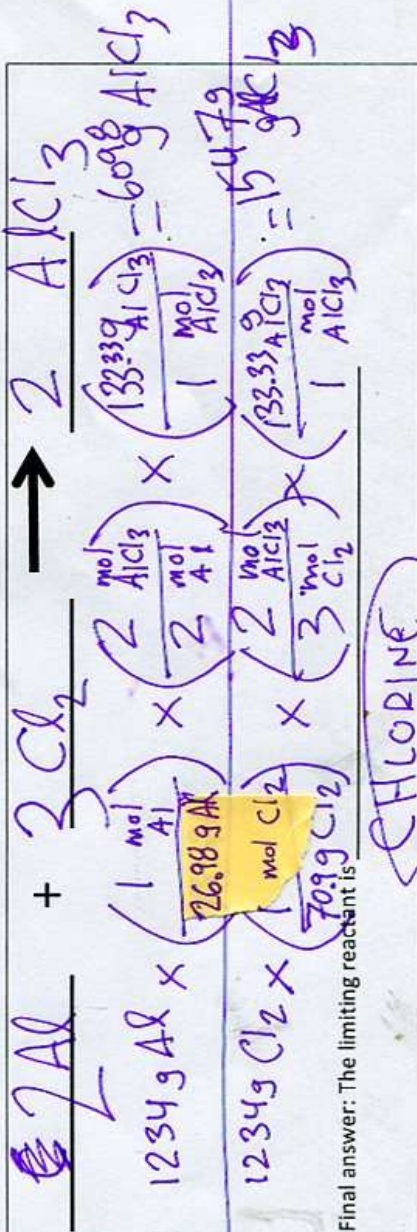 2Al + 3Cl₂ → 2 AlCl₃
1234g Al × (1 mol Al / 26.98 g Al) × (2 mol AlCl₃ / 2 mol Al) × (133.33g AlCl₃ / 1 mol AlCl₃) = 6098 g AlCl₃
1234g Cl₂ × (1 mol Cl₂ / 70.9g Cl₂) × (2 mol AlCl₃ / 3 mol Cl₂) × (133.33 g AlCl₃ / 1 mol AlCl₃) = 1547g AlCl₃
Final answer: The limiting reactant is
CHLORINE